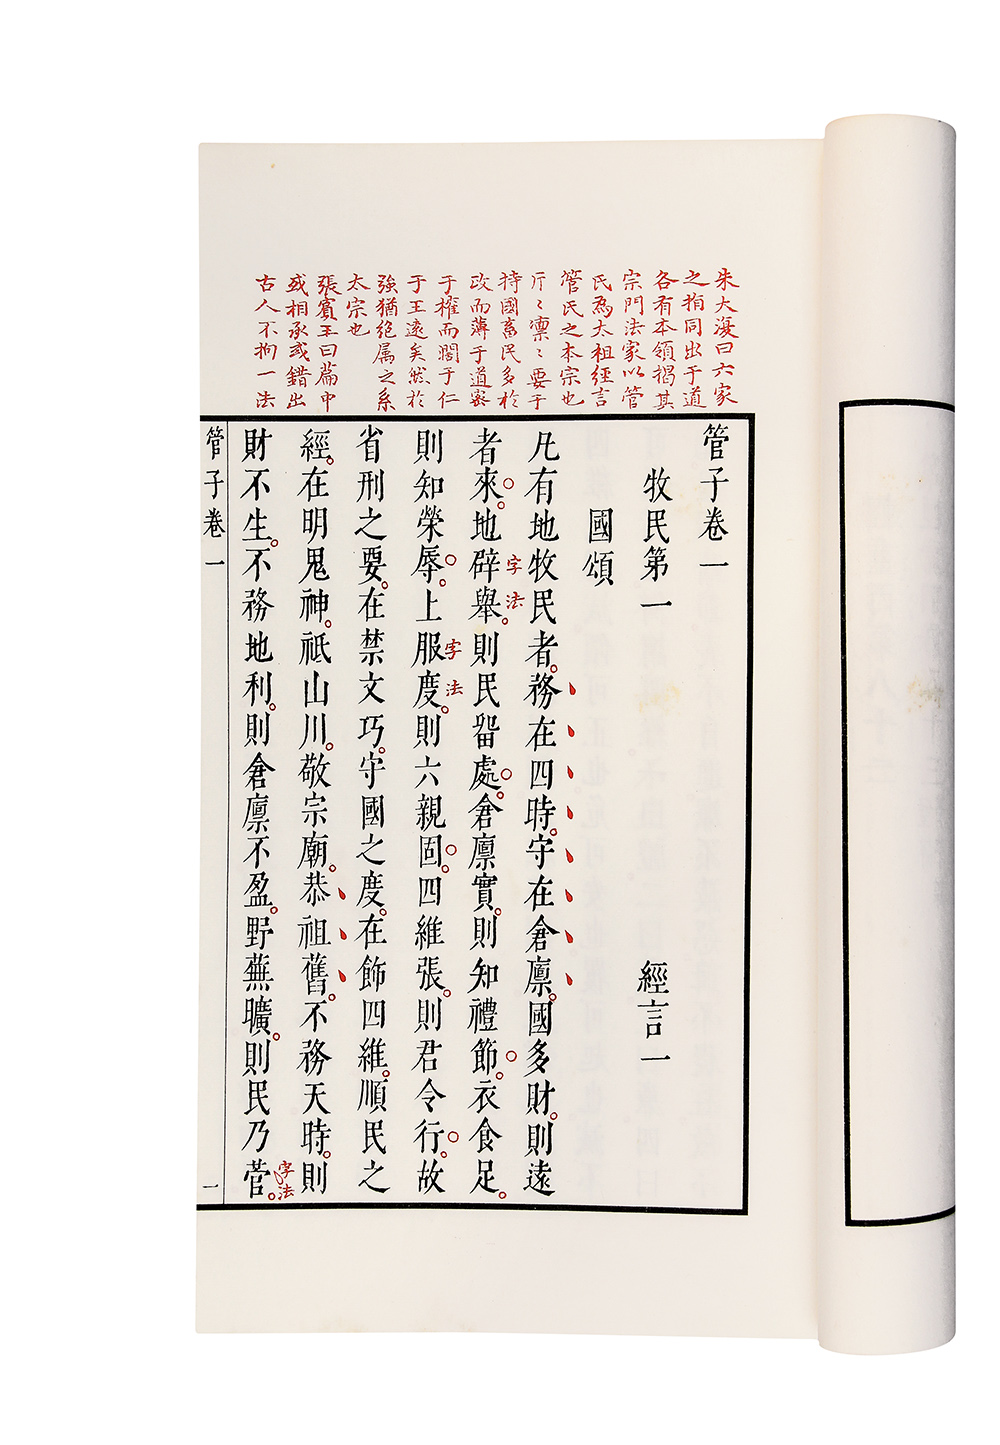 朱大復曰六家
之指同出于道
各有本領揭其
宗門法家以管
氏為太祖經言
管氏之本宗也
斤〻禀〻要于
持國畜民多於
政而薄于道密
于權而闊于仁
于王遠矣然於
強猶絶属之系
太宗也
張賓王曰篇中
或相承或錯出
古人不拘一法
管子卷一
牧民第一 經言一
國頌
凡有地牧民者。務在四時。守在倉廩。國多財。則遠
者來。地辟舉。則民畱處。倉廩實。則知禮節。衣食足。
字法
則知榮辱。上服度。則六親固。四維張。則君令行。故
字法
省刑之要。在禁文巧。守國之度。在飾四維。順民之
經。在明鬼神。祗山川。敬宗廟。恭祖舊。不務天時。則
財不生。不務地利。則倉廩不盈。野蕪曠。則民乃菅。
字法
管子卷一
一